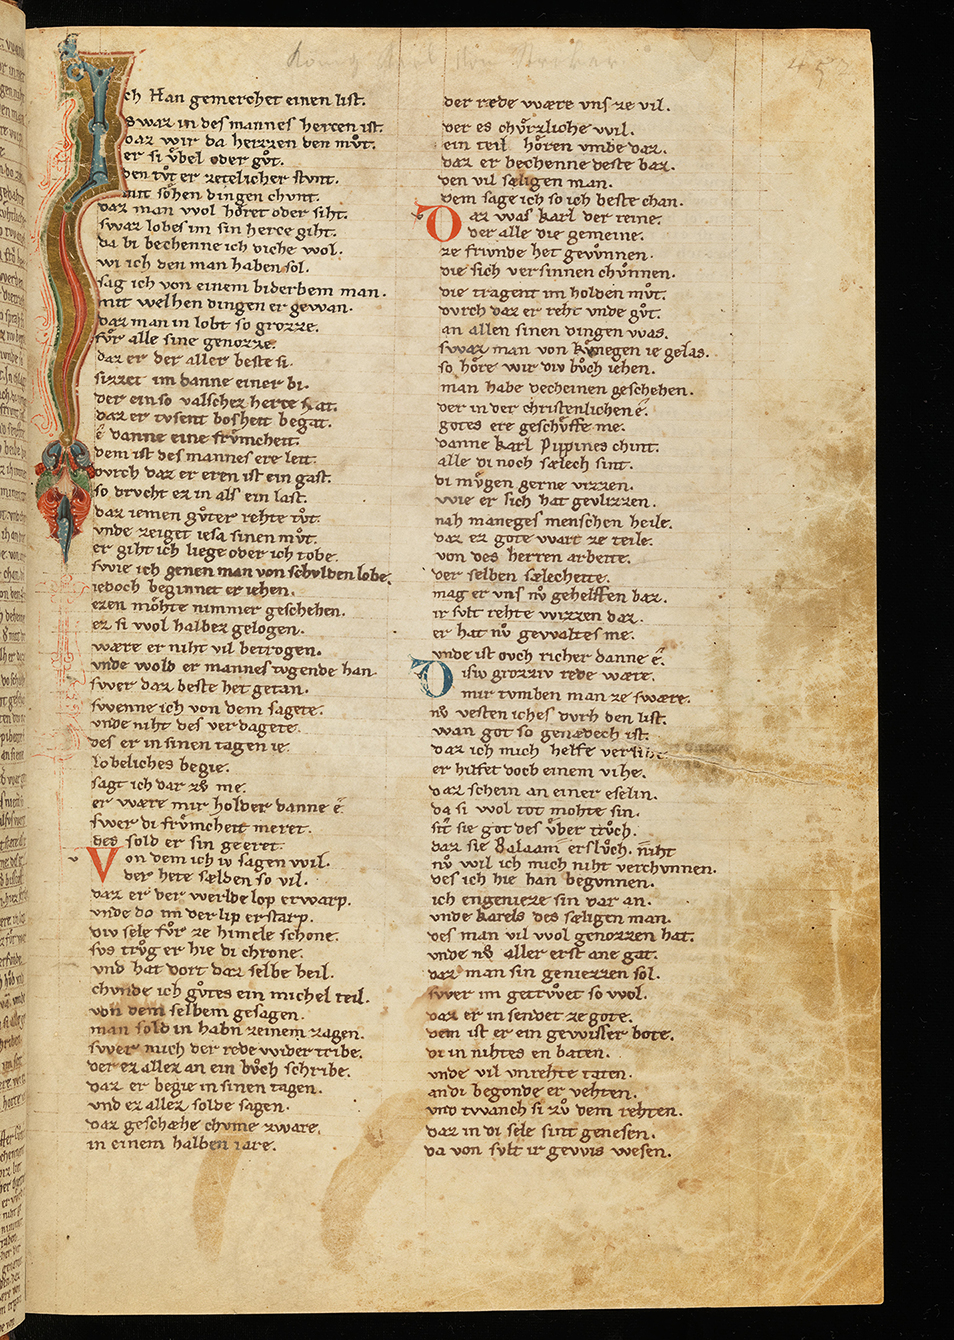 König Karl
452
Ich Han gemerchet einen list.
swaz in des mannes hercen ist.
daz wir da heizzen den mvͦt.
er si vͤbel oder gvͦt.
den tvͦt er zetelicher stvnt.
mit sohen dingen chvnt.
daz man wol hoͤret oder siht.
swaz lobes im sin herce giht.
da bi bechenne ich diche wol.
wi ich den man haben sol.
sag ich von einem biderbem man.
mit welhen dingen er gewan.
daz man in lobt so grozze.
fvͤr alle sine genozze.
daz er der aller beste si.
sizzet im danne einer bi.
der ein so valschez herce hat.
daz er tvsent bosheit begat.
e danne eine frvͤmcheit.
dem ist des mannes ere leit.
dvrch daz er eren ist ein gast.
so drvcht ez in als ein last.
daz iemen gvͦter rehte tvͦt.
vnde zeiget iesa sinen mvͦt.
er giht ich liege oder ich tobe.
swie ich genen man von schvlden lobe.
iedoch beginnet er iehen.
ezen moͤhte nimmer geschehen.
ez si wol halbez gelogen.
wære er niht vil betrogen.
vnde wold er mannes tvgende han.
swer daz beste het getan.
swenne ich von dem sagete.
vnde niht des verdagete.
des er in sinen tagen ie.
lobeliches begie.
sagt ich daz zvͦ me.
er wære mir holder danne e.
swer di frvͤmcheit meret.
des sold er sin geeret.
Von dem ich iv sagen wil.
der hete sælden so vil.
daz er der werlde lop erwarp.
vnde do im der lip erstarp.
div sele fvͦr ze himele schone.
svs trvͦg er hie di chrone.
vnd hat dort daz selbe heil.
chvnde ich gvͦtes ein michel teil.
von dem selbem gesagen.
man sold in habn zeinem zagen.
swer mich der rede wider tribe.
der ez allez an ein bvͦch schribe.
daz er begie in sinen tagen.
vnd ez allez solde sagen.
daz geschæhe chvme zware.
in einem halben iare.
der rede wære vns ze vil.
der es chvͤrzliche wil.
ein teil hoͤren vmbe daz.
daz er bechenne deste baz.
den vil sæligen man.
dem sage ich so ich beste chan.
Daz was Karl der reine.
der alle die gemeine.
ze frivnde het gewnnen.
die sich versinnen chvnnen.
die tragent im holden mvͦt.
dvrch daz er reht vnde gvͦt.
an allen sinen dingen was.
swaz man von kvnegen ie gelas.
so hoͤre wir div bvͦch iehen.
man habe decheinen geschehen.
der in der christenlichen e.
gotes ere geschvͤffe me.
danne Karl Pippines chint.
alle di noch sælech sint.
di mvͤgen gerne wizzen.
wie er sich hat gevlizzen.
nah maneges menschen heile.
daz ez gote wart ze teile.
von des herren arbeite.
der selben sælecheite.
mag er vns nv gehelffen baz.
ir svlt rehte wizzen daz.
er hat nv gewaltes me.
vnde ist ovch richer danne e.
Disiv grozziv rede wære.
mir tvmben man ze swære.
nv vesten iches dvrh den list.
wan got so genædech ist.
daz ich mich helfe
er hilfet doch einem vihe.
daz schein an einer eselin.
da si wol tot mohte sin.
sit sie got des vͤber trvͦch.
daz sie Balaam erslvͦch. niht
nv wil ich mich niht verchvnnen.
des ich hie han begvnnen.
ich engenieze sin dar an.
vnde Karels des sæligen man.
des man vil wol genozzen hat.
vnde nv aller erst ane gat.
daz man sin geniezzen sol.
swer im getrvwet so wol.
daz er in sendet ze gote.
dem ist er ein gewisser bote.
di in nihtes en baten.
vnde vil vnrehte taten.
an di begonde er vehten.
vnd twanch si zvͦ dem rehten.
daz in di sele sint genesen.
da von svlt ir gewis wesen.